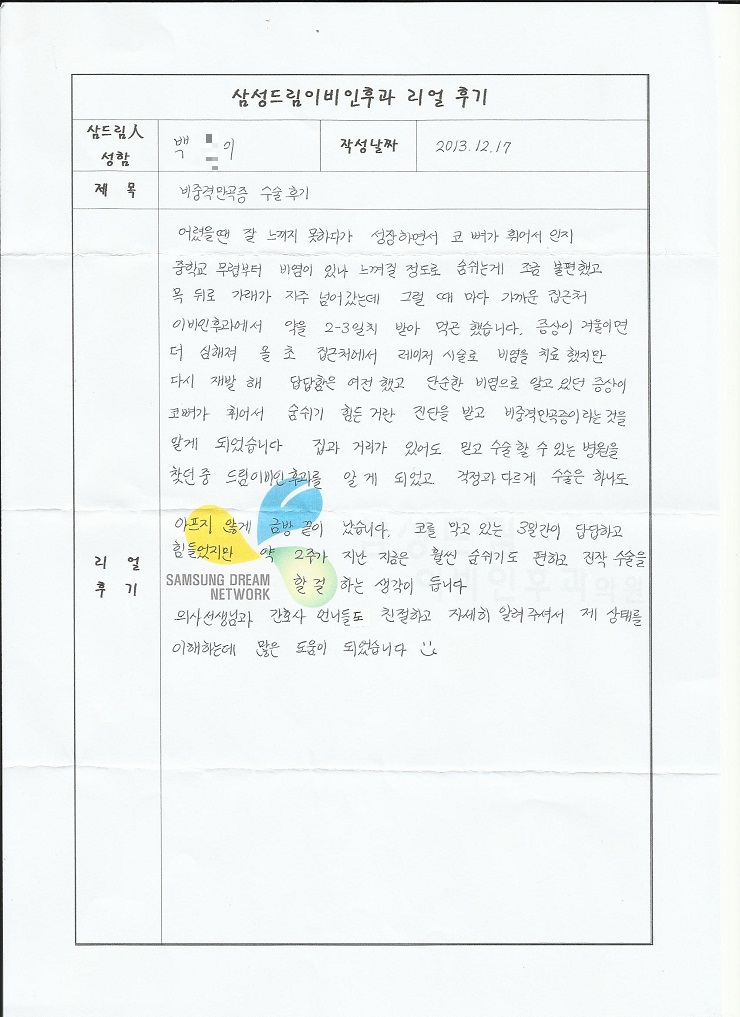 삼성드림이비인후과 리얼 후기
삼드림人
성함
백 이
작성날짜
2013.12.17
제 목
비중격만곡증 수술 후기
어렸을땐 잘 느끼지 못하다가 성장하면서 코 뼈가 휘어서 인지
중학교 무렵부터 비염이 있나 느껴질 정도로 숨쉬는게 조금 불편했고
목 뒤로 가래가 자주 넘어갔는데 그럴 때 마다 가까운 집근처
이비인후과에서 약을 2-3일치 받아 먹곤 했습니다. 증상이 겨울이면
더 심해져 올 초 집근처에서 레이저 시술로 비염을 치료 했지만
다시 재발 해 답답함은 여전 했고 단순한 비염으로 알고 있던 증상이
코뼈가 휘어서 숨쉬기 힘든거란 진단을 받고 비중격만곡증이라는 것을
알게 되었습니다 집과 거리가 있어도 믿고 수술 할 수 있는 병원을
찾던 중 드림이비인후과를 알 게 되었고 걱정과 다르게 수술은 하나도
아프지 않게 금방 끝이 났습니다. 코를 막고 있는 3일간이 답답하고
힘들었지만 약 2주가 지난 지금은 훨씬 숨쉬기도 편하고 진작 수술을
할 걸 하는 생각이 듭니다
의사선생님과 간호사 언니들도 친절하고 자세히 알려주셔서 제 상태를
이해하는데 많은 도움이 되었습니다
리 얼
후 기
SAMSUNG DREAM
NETWORK
이비인후과의원